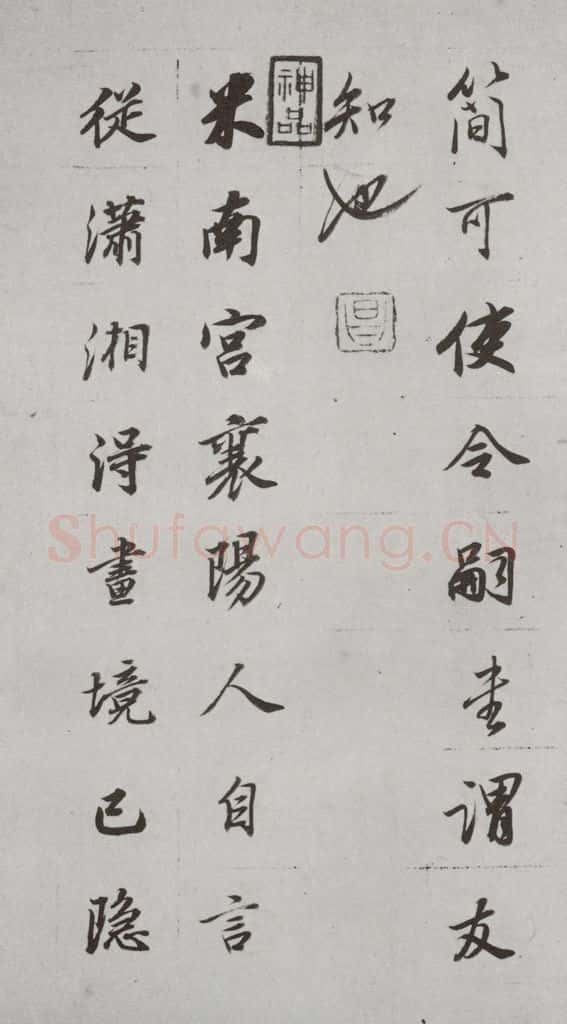 簡可使令嗣書謂友
知也
神品
米南宮襄陽人自言
從瀟湘得畫境已隱
Shufawang.CN